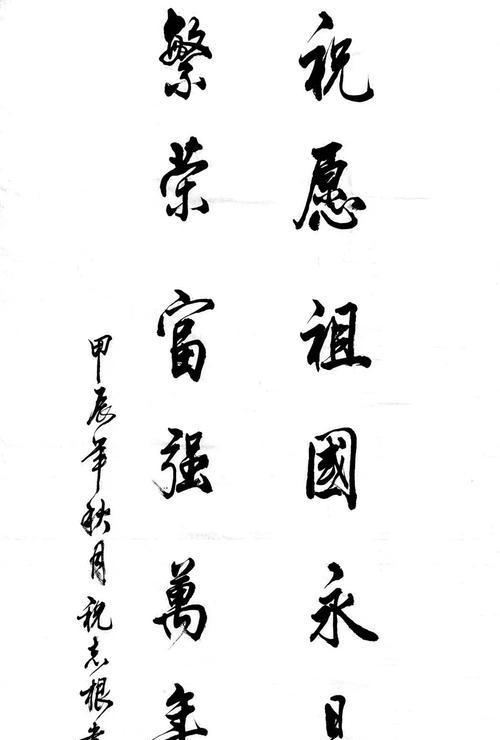 祝愿祖國永
繁荣富强萬年
甲辰年秋月祝志根